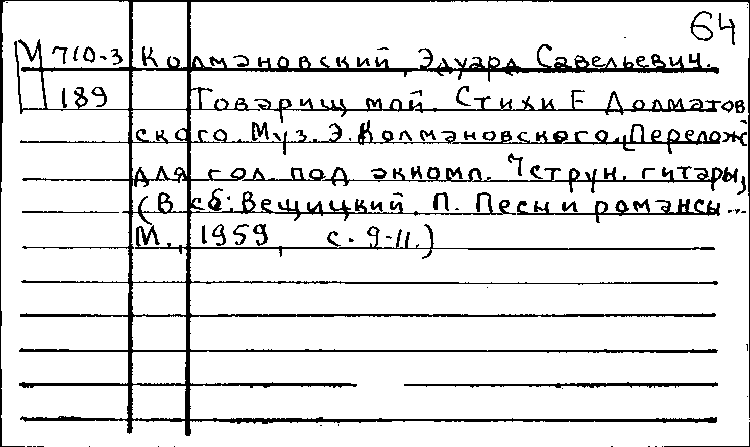 64
М 710-3 Колмановский, Эдуард Савельевич.
189 Товарищ мой. Стихи Е Долматов
ского. Муз. Э. Колмановского. [Перелож
для гол. под акком. 7струн. гитары,
(В сб: Вещицкий, П. Песни и романсы...
М., 1959, с. 9-11.)